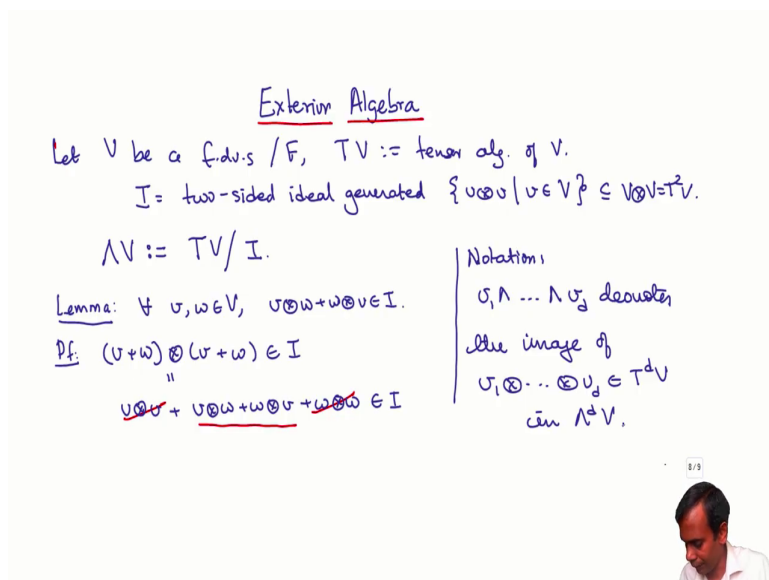 Exterior Algebra
Let V be a f.d.v.s / F, TV := tensor alg. of V.
I = two-sided ideal generated {v⊗v | v ∈ V} ⊆ V⊗V = T²V.
ΛV := TV/I.
Lemma: ∀ v, w ∈ V, v⊗w + w⊗v ∈ I.
Pf: (v+w) ⊗ (v+w) ∈ I
"
v⊗v + v⊗w + w⊗v + w⊗w ∈ I
Notation:
v₁ ∧ ... ∧ v_d denotes
the image of
v₁ ⊗ ... ⊗ v_d ∈ T^d V
in Λ^d V.
8/9